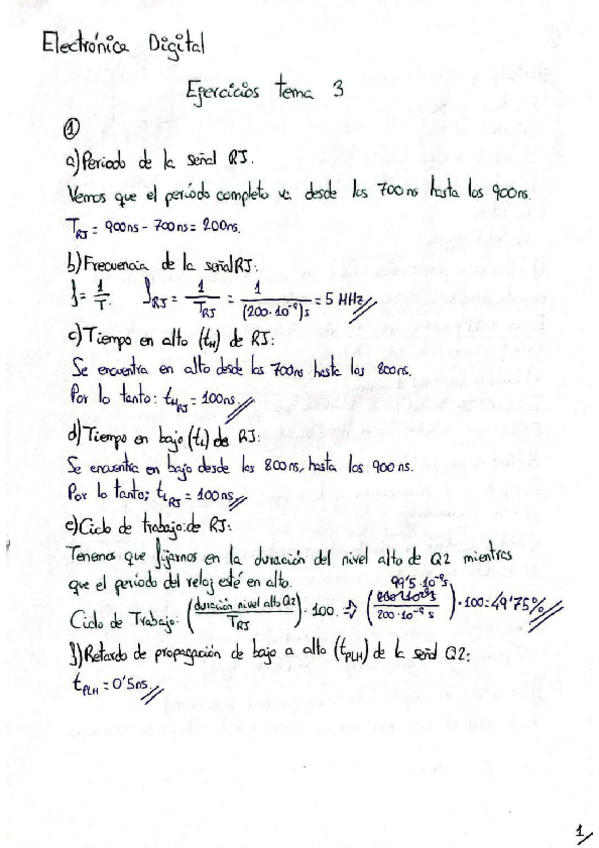 Electrónica Digital
Ejercicios tema 3
①
a) Periodo de la señal RJ.
Vemos que el periodo completo va desde los 700ns hasta los 900ns.
T_RJ = 900ns - 700ns = 200ns.
b) Frecuencia de la señal RJ:
f = 1/T. f_RJ = 1/T_RJ = 1/(200·10⁻⁹)s = 5 MHz
c) Tiempo en alto (t_H) de RJ:
Se encuentra en alto desde los 700ns hasta los 800ns.
Por lo tanto: t_H_RJ = 100ns.
d) Tiempo en bajo (t_L) de RJ:
Se encuentra en bajo desde los 800ns, hasta los 900ns.
Por lo tanto; t_L_RJ = 100ns
e) Ciclo de trabajo: de RJ:
Tenemos que fijarnos en la duración del nivel alto de Q2 mientras
que el periodo del reloj esté en alto.
Ciclo de Trabajo: (duración nivel alto Q2/T_RJ)·100. ⇒ (99'5·10⁻⁹s/200·10⁻⁹s)·100 = 49'75%
f) Retardo de propagación de bajo a alto (t_PLH) de la señal Q2:
t_PLH = 0'5ns.
1